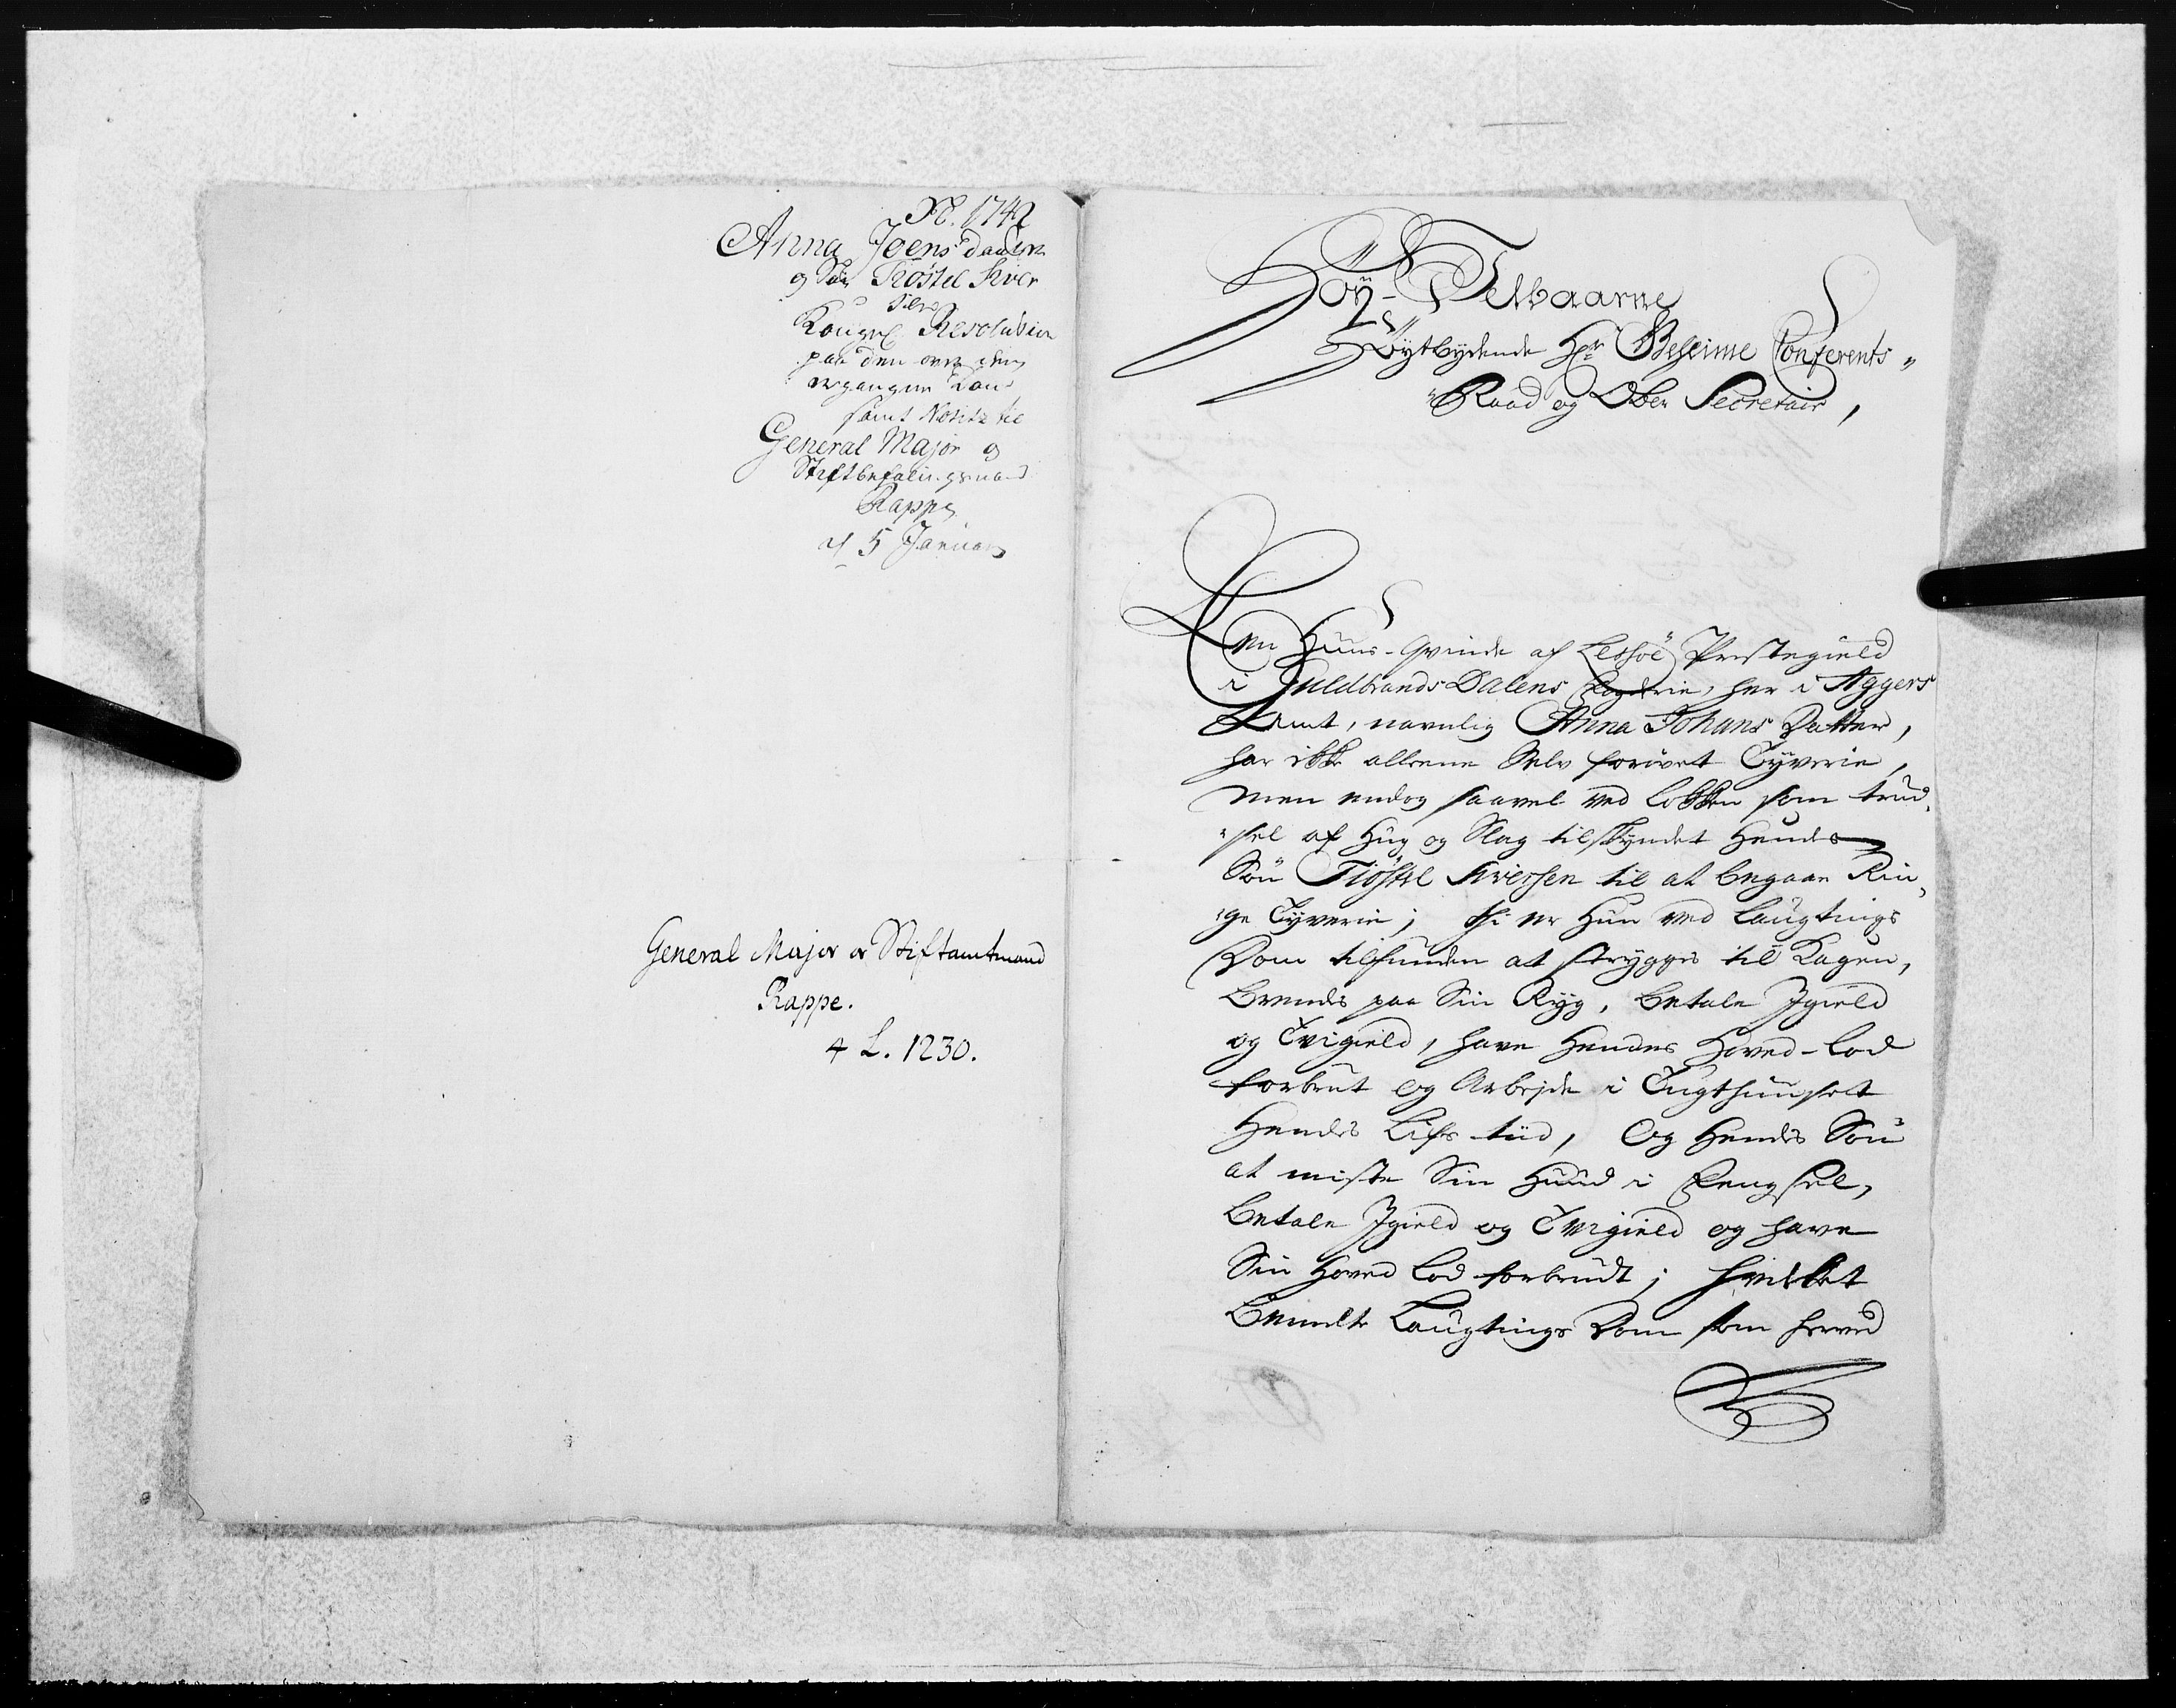 1742
Anna Joens daatter
og Søn Tröstel Iver
sens
Kongel Resolution
paa den over dem
ergangne Laug
samt Notitz til
General Major og
Stiftbefalingsmand
Rappe
af 5 Januar
General Major og Stiftamtmand
Rappe.
4 L. 1230.
Höÿ-Velbaarne
Höytbydende Hr Geheime Conferents-
Raad og Ober Secretair,
En Huus-Qvinde af Lessöe Prestegield
i Guldbrands Dalens Fogderie, her i Aggers
Huus Amt, navnlig Anna Johans Datter,
har ikke alleene Selv forövet Tyverie,
men endog saavel ved lokken som trud-
sel af Hug og Slag tilskyndet Hendes
Sön Tiöstel Iversen til at begaae Rin-
ge Tyverie; thi er Hun ved Laugtings
Dom tilfunden at stryges til Kagen,
Brendes paa Sin Ryg, betale Igield
og Tvigield, have Hendes Hoved-lod
forbrut og Arbejde i Tugthuuset
Hendes Lifs tiid, Og Hendes Sön
at miste Sin Huud i Fengsel,
betale Igield og Tvigield og have
Sin Hoved Lod forbrudt; hvilket
Bemelte Laugtings Dom som herved